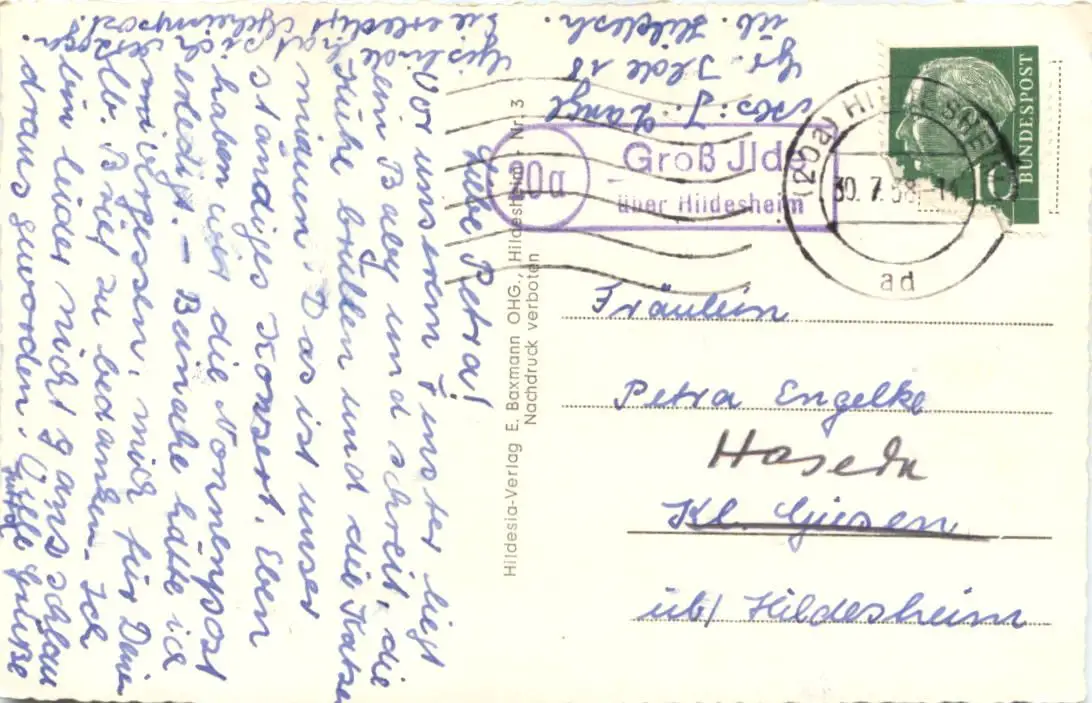 Abs: J. Lange
Gr. Ilde 18
üb. Hildesh.
Liebe Petra!
Vor unserem Fenster liegt
ein Baby und schreit, die
Kühe brüllen und die Katzen
miauen. Das ist unser
ständiges Konzert. Eben
haben wir die Nonnenpost
erledigt. – Beinahe hätte ich
vergessen, mich für Deinen
lb. Brief zu bedanken. Ich
bin leider nicht ganz schlau
draus geworden. Viele Grüße
Gislinde
hat sich
Sie erledigt Geheimpost!
Hildesia-Verlag E. Baxmann OHG., Hildesheim Nr. 3
Nachdruck verboten
20a
Groß Jlde
über Hildesheim
(20a) HILDESHEIM
30.7.58-1
ad
BUNDESPOST
10
Fräulein
Petra Engelke
Hasede
Kl. Giesen
üb/ Hildesheim